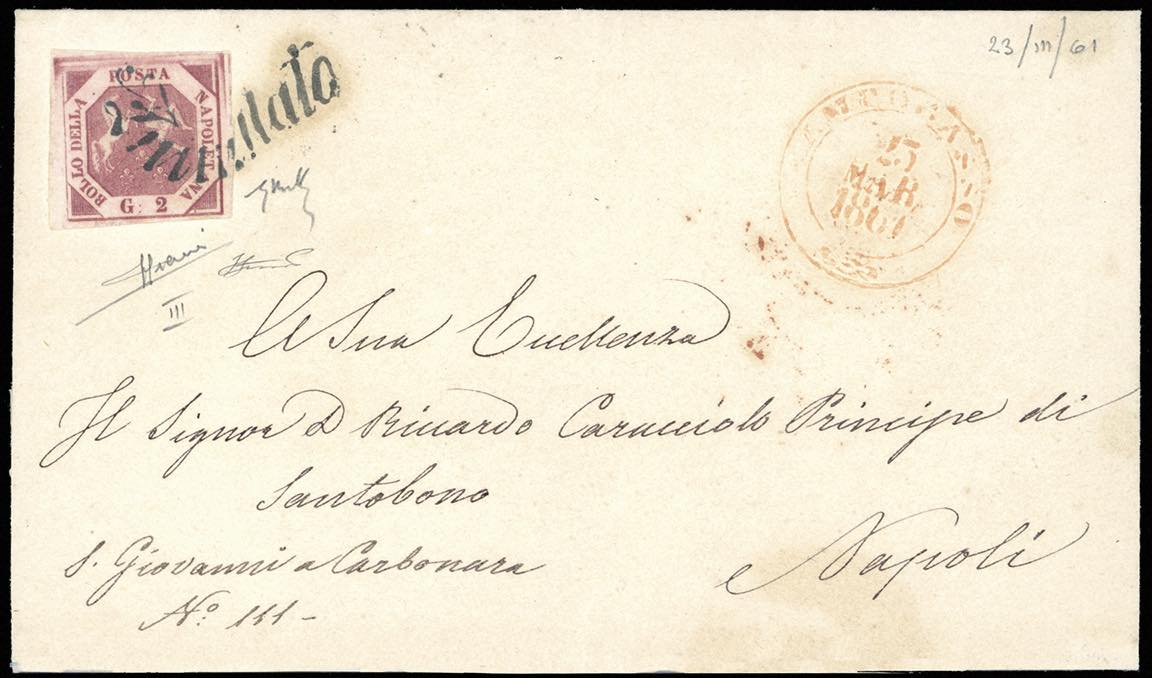 23/III/61
POSTA
NAPOLETANA
BOLLO DELLA
G. 2
Annullato
25
MAR.
1861
III
A Sua Eccellenza
Il Signor D Riccardo Caracciolo Principe di
Santobono
S. Giovanni a Carbonara
Nº 111 -
Napoli